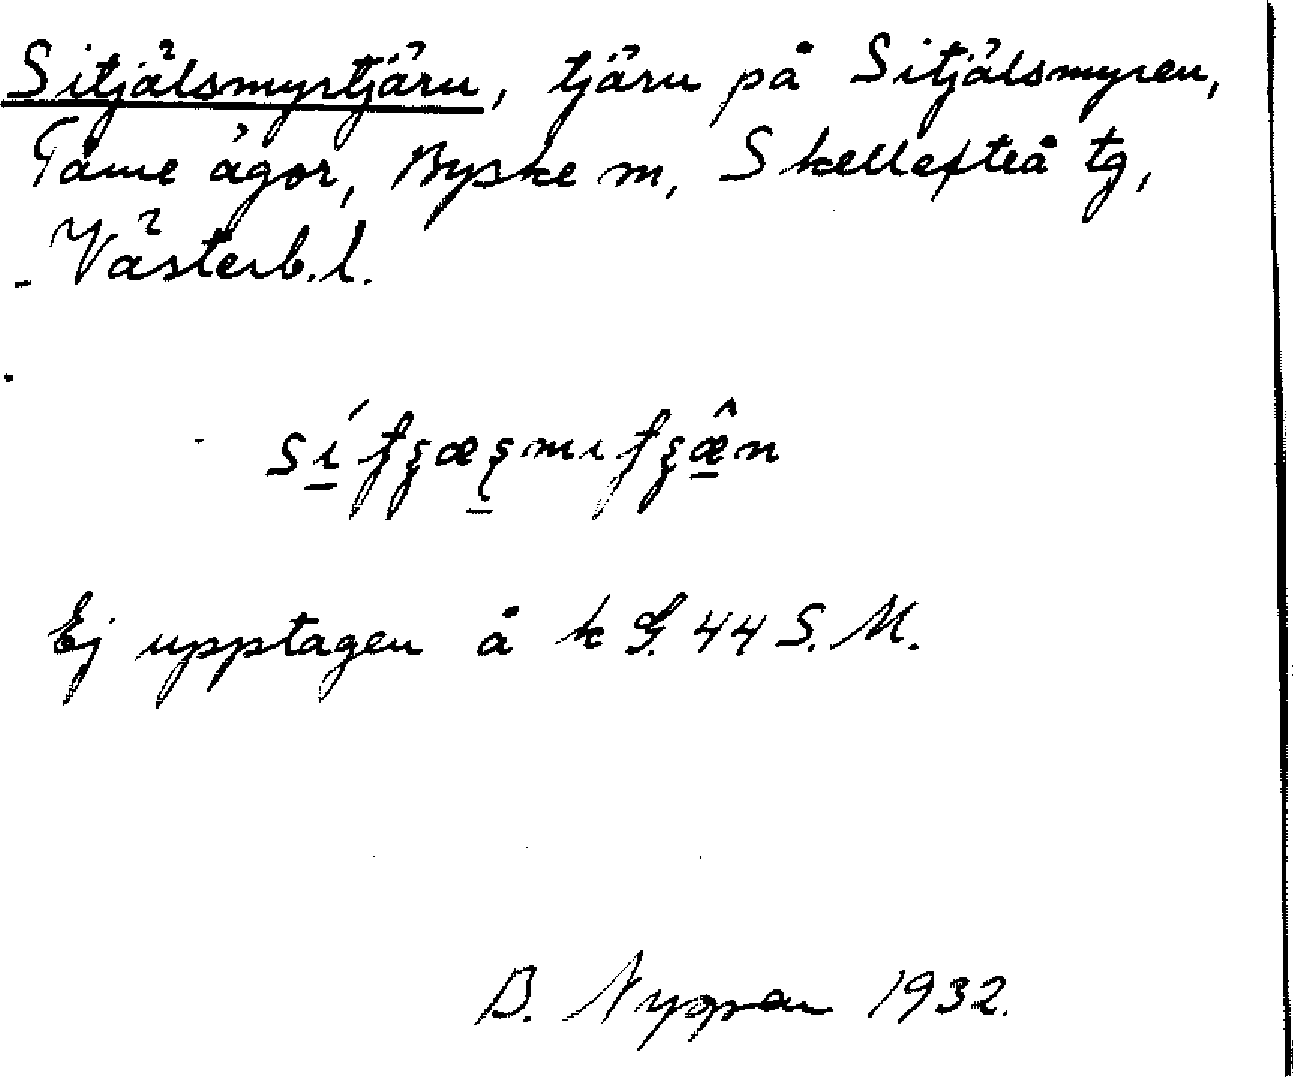 Sitjälsmyrtjärn, tjärn på Sitjälsmyren,
Tåme ägor, Byske m, Skellefteå tg,
Västerb.l.
Ej upptagen å k G. 44 S. M.
B. 1932.